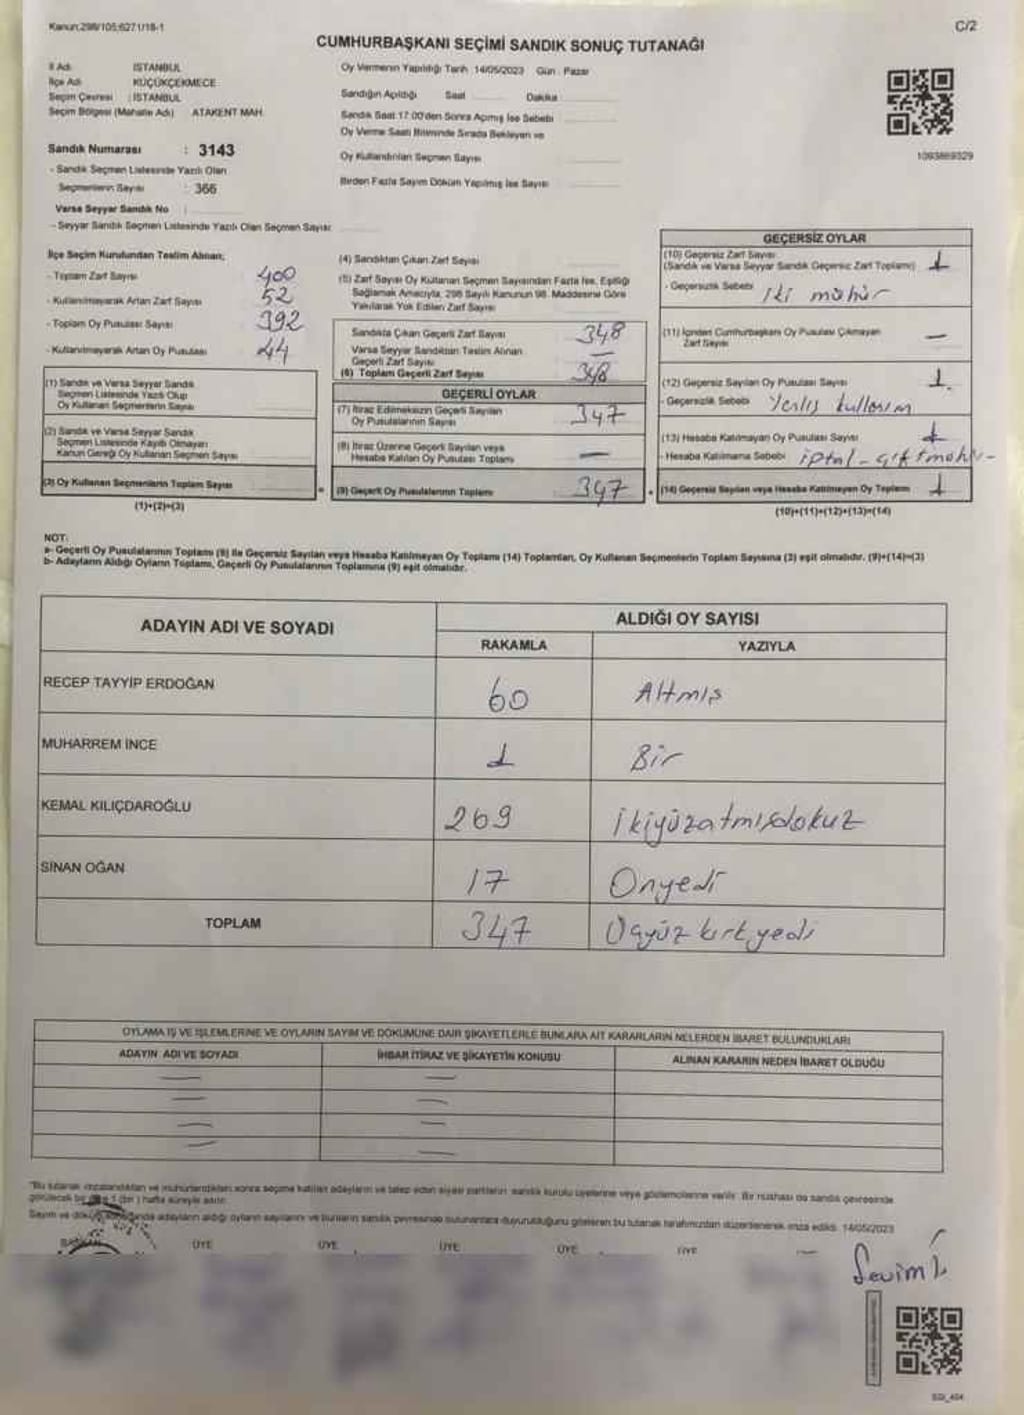 Kanun:298/105;6271/18-1
C/2
CUMHURBAŞKANI SEÇİMİ SANDIK SONUÇ TUTANAĞI
İl Adı İSTANBUL
İlçe Adı KÜÇÜKÇEKMECE
Seçim Çevresi : İSTANBUL
Seçim Bölgesi (Mahalle Adı) ATAKENT MAH.
Sandık Numarası : 3143
- Sandık Seçmen Listesinde Yazılı Olan
Seçmenlerin Sayısı : 366
Varsa Seyyar Sandık No :
- Seyyar Sandık Seçmen Listesinde Yazılı Olan Seçmen Sayısı:
Oy Vermenin Yapıldığı Tarih :14/05/2023 Gün : Pazar
Sandığın Açıldığı Saat Dakika
Sandık Saat 17:00'den Sonra Açmış İse Sebebi
Oy Verme Saati Bitiminde Sırada Bekleyen ve
Oy Kullandırılan Seçmen Sayısı
Birden Fazla Sayım Döküm Yapılmış İse Sayısı
1093869329
İlçe Seçim Kurulundan Teslim Alınan;
- Toplam Zarf Sayısı 400
- Kullanılmayarak Artan Zarf Sayısı 52
- Toplam Oy Pusulası Sayısı 392
- Kullanılmayarak Artan Oy Pusulası 44
(1) Sandık ve Varsa Seyyar Sandık
Seçmen Listesinde Yazılı Olup
Oy Kullanan Seçmenlerin Sayısı
(2) Sandık ve Varsa Seyyar Sandık
Seçmen Listesinde Kayıtlı Olmayan
Kanun Gereği Oy Kullanan Seçmen Sayısı
(3) Oy Kullanan Seçmenlerin Toplam Sayısı
(1)+(2)=(3)
=
(4) Sandıktan Çıkan Zarf Sayısı
(5) Zarf Sayısı Oy Kullanan Seçmen Sayısından Fazla İse, Eşitliği
Sağlamak Amacıyla, 298 Sayılı Kanunun 98. Maddesine Göre
Yakılarak Yok Edilen Zarf Sayısı
Sandıkta Çıkan Geçerli Zarf Sayısı 348
Varsa Seyyar Sandıktan Teslim Alınan
Geçerli Zarf Sayısı —
(6) Toplam Geçerli Zarf Sayısı 348
GEÇERLİ OYLAR
(7) İtiraz Edilmeksizin Geçerli Sayılan
Oy Pusulalarının Sayısı 347
(8) İtiraz Üzerine Geçerli Sayılan veya
Hesaba Katılan Oy Pusulası Toplamı —
(9) Geçerli Oy Pusulalarının Toplamı 347
+
GEÇERSİZ OYLAR
(10) Geçersiz Zarf Sayısı
(Sandık ve Varsa Seyyar Sandık Geçersiz Zarf Toplamı) 1
- Geçersizlik Sebebi İki mühür
(11) İçinden Cumhurbaşkanı Oy Pusulası Çıkmayan
Zarf Sayısı —
(12) Geçersiz Sayılan Oy Pusulası Sayısı 1.
- Geçersizlik Sebebi
(13) Hesaba Katılmayan Oy Pusulası Sayısı 1
- Hesaba Katılmama Sebebi iptal - çift
(14) Geçersiz Sayılan veya Hesaba Katılmayan Oy Toplamı 1
(10)+(11)+(12)+(13)=(14)
NOT:
a- Geçerli Oy Pusulalarının Toplamı (9) ile Geçersiz Sayılan veya Hesaba Katılmayan Oy Toplamı (14) Toplamları, Oy Kullanan Seçmenlerin Toplam Sayısına (3) eşit olmalıdır. (9)+(14)=(3)
b- Adayların Aldığı Oyların Toplamı, Geçerli Oy Pusulalarının Toplamına (9) eşit olmalıdır.
ADAYIN ADI VE SOYADI
ALDIĞI OY SAYISI
RAKAMLA YAZIYLA
RECEP TAYYİP ERDOĞAN 60 Altmış
MUHARREM İNCE 1 Bir
KEMAL KILIÇDAROĞLU 269 ikiyüzatmışdokuz
SİNAN OĞAN 17 Onyedi
TOPLAM 347 Üçyüzkırkyedi
OYLAMA İŞ VE İŞLEMLERİNE VE OYLARIN SAYIM VE DÖKÜMÜNE DAİR ŞİKAYETLERLE BUNLARA AİT KARARLARIN NELERDEN İBARET BULUNDUKLARI
ADAYIN ADI VE SOYADI İHBAR İTİRAZ VE ŞİKAYETİN KONUSU ALINAN KARARIN NEDEN İBARET OLDUĞU
"Bu tutanak imzalandıktan ve mühürlendikten sonra seçime katılan adayların ve talep eden siyasi partilerin sandık kurulu üyelerine veya gözlemcilerine verilir. Bir nüshası da sandık çevresinde
görülecek bir 1 (bir) hafta süreyle asılır.
Sayım ve döküm adayların aldığı oyların sayılarını ve bunların sandık çevresinde bulunanlara duyurulduğunu gösteren bu tutanak tarafımızdan düzenlenerek imza edildi. 14/05/2023
BAŞKAN ÜYE ÜYE ÜYE ÜYE ÜYE